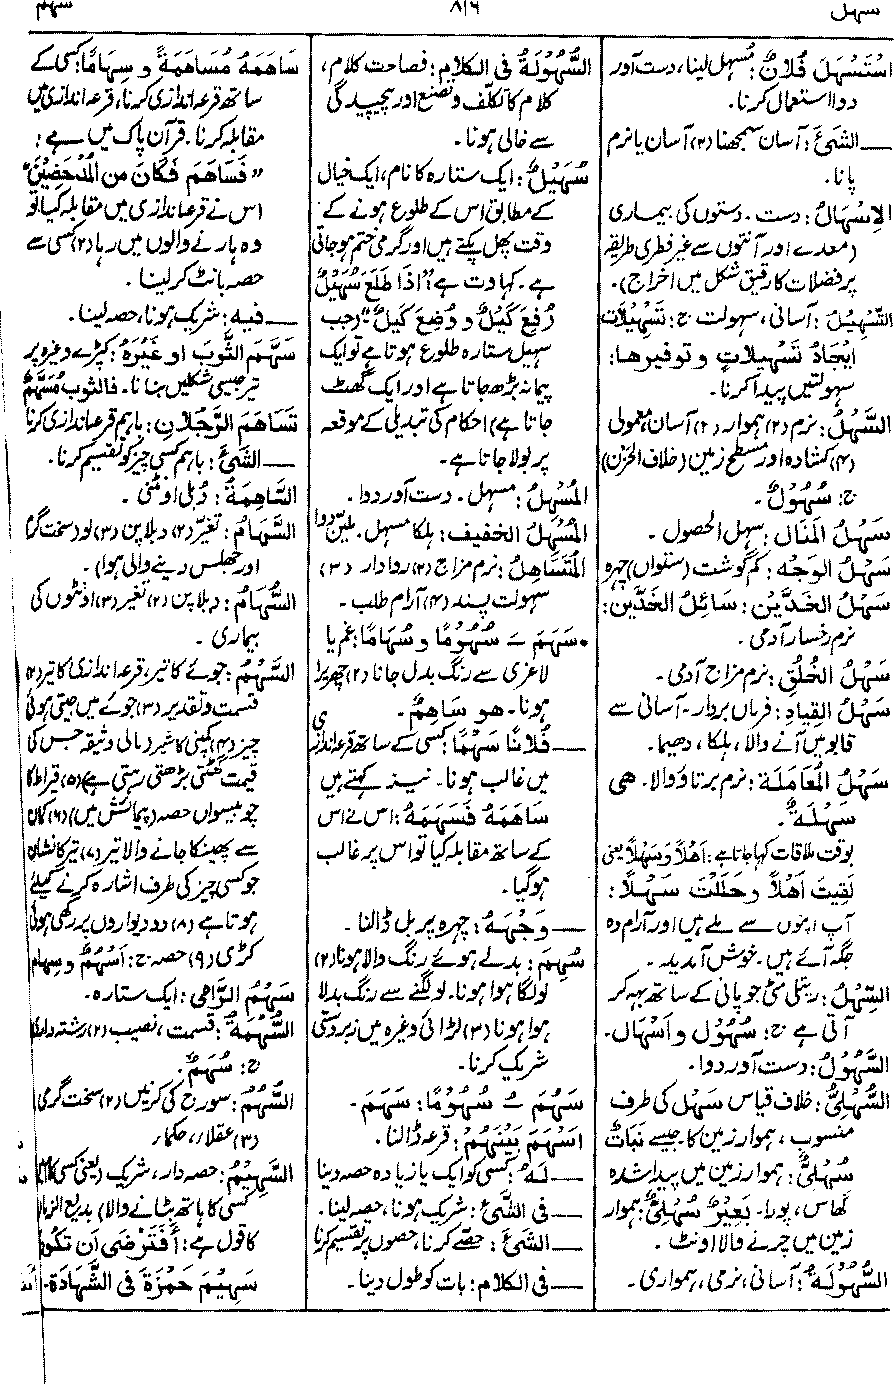 سہل
۸۱۶
سہم
اسْتَسْهَلَ فُلَانٌ: مُسہل لینا، دست آور
دوا استعمال کرنا۔
ــــ الشَّیْءَ: آسان سمجھنا (۲) آسان یا نرم
پانا۔
الإِسْهَالُ: دست۔ دستوں کی بیماری
(معدے اور آنتوں سے غیر فطری طریقہ
پر فضلات کا رقیق شکل میں اخراج)۔
التَّسْهِيلُ: آسانی، سہولت ج: تَسْهِيلَات
اِيْجَادُ تَسْهِيلاتٍ و توفيرها:
سہولتیں پیدا کرنا۔
السَّهْلُ: نرم (۲) ہموار (۳) آسان، معمولی
(۴) کشادہ اور مسطح زمین (خلاف الحَزْن)
ج: سُهُولٌ۔
سَهْلُ المَنَال: سہل الحصول۔
سَهْلُ الوَجْه: کم گوشت (ستواں) چہرہ
سَهْلُ الخَدَّيْن: سَائِلُ الخَدَّين:
نرم رخسار آدمی۔
سَهْلُ الخُلُقِ: نرم مزاج آدمی۔
سَهْلُ القِيادِ: فرماں بردار۔ آسانی سے
قابو میں آنے والا، ہلکا، دھیما۔
سَهْلُ المُعَامَلَة: نرم برتاؤ والا۔ هی
سَهْلَةٌ۔
بوقت ملاقات کہا جاتا ہے: اَهْلاً وَسَهْلاً یعنی
لَقِيتَ اَهْلاً وحَلَلْتَ سَهْلاً:
آپ اپنوں سے ملے ہیں اور آرام دہ
جگہ آئے ہیں۔ خوش آمدید۔
السِّهْلُ: ریتلی مٹی جو پانی کے ساتھ بہہ کر
آتی ہے ج: سُهُوْل و اَسْهَال۔
السَّهُوْلُ: دست آور دوا۔
السُّهْلِیُّ: خلاف قیاس سَهْل کی طرف
منسوب، ہموار زمین کا۔ جیسے نَبَاتٌ
سُهْلِیٌّ: ہموار زمین میں پیدا شدہ
گھاس، پودا۔ بَعِيْرٌ سُهْلِیٌّ: ہموار
زمین میں چرنے والا اونٹ۔
السُّهُوْلَةُ: آسانی، نرمی، ہمواری۔
السُّهُوْلَةُ فی الکلام: فصاحت کلام،
کلام کا تکلّف و تصنع اور پیچیدگی
سے خالی ہونا۔
سُهَيْلٌ: ایک ستارہ کا نام، ایک خیال
کے مطابق اس کے طلوع ہونے کے
وقت پھل پکتے ہیں اور گرمی ختم ہو جاتی
ہے۔ کہاوت ہے: "اذا طَلَعَ سُهَيْلٌ
رُفِعَ كَيْلٌ و وُضِعَ كَيْلٌ" (جب
سہیل ستارہ طلوع ہوتا ہے تو ایک
پیمانہ بڑھ جاتا ہے اور ایک گھٹ
جاتا ہے) احکام کی تبدیلی کے موقعہ
پر بولا جاتا ہے۔
المُسْهِلُ: مسہل۔ دست آور دوا۔
المُسْهِلُ الخفیف: ہلکا مسہل۔ ملیّن دوا
المُتَسَاهِلُ: نرم مزاج (۲) روادار (۳)
سہولت پسند (۴) آرام طلب۔
• سَهَمَ ــَـ سُهُوْمًا و سُهَامًا: غم یا
لاغری سے رنگ بدل جانا (۲) چھریرا
ہونا۔ هو سَاهِمٌ۔
ــــ فُلَانًا سَهْمًا: کسی کے ساتھ قرعہ اندازی
میں غالب ہونا۔ نیز کہتے ہیں
سَاهَمَهُ فَسَهَمَهُ: اس نے اس
کے ساتھ مقابلہ کیا تو اس پر غالب
ہوگیا۔
ــــ وَجْهَهُ: چہرہ پر بل ڈالنا۔
سُهِمَ: بدلے ہوئے رنگ والا ہونا (۲)
لو لگا ہوا ہونا۔ لو لگنے سے رنگ بدلا
ہوا ہونا (۳) لڑائی وغیرہ میں زبردستی
شریک کرنا۔
سَهُمَ ــُـ سُهُوْمًا: سَهَمَ۔
اَسْهَمَ بَيْنَهُم: قرعہ ڈالنا۔
ــــ لَهُ: کسی کو ایک یا زیادہ حصہ دینا
ــــ فی الشَّیْءِ: شریک ہونا، حصہ لینا۔
ــــ الشَّیْءَ: حصّے کرنا، حصوں پر تقسیم کرنا
ــــ فی الکلام: بات کو طول دینا۔
سَاهَمَهُ مُسَاهَمَةً و سِهَامًا: کسی کے
ساتھ قرعہ اندازی کرنا، قرعہ اندازی میں
مقابلہ کرنا۔ قرآن پاک میں ہے:
"فَسَاهَمَ فَكَانَ مِنَ المُدْحَضِيْنَ"
اس نے قرعہ اندازی میں مقابلہ کیا تو
وہ ہارنے والوں میں رہا (۲) کسی سے
حصہ بانٹ کر لینا۔
ــــ فیه: شریک ہونا، حصہ لینا۔
سَهَّمَ الثَّوبَ او غَيْرَهُ: کپڑے وغیرہ پر
تیر جیسی شکلیں بنانا۔ فالثوب مُسَهَّمٌ
تَسَاهَمَ الرَّجُلَانِ: باہم قرعہ اندازی کرنا
ــــ الشَّیْءَ: باہم کسی چیز کو تقسیم کرنا۔
السَّاهِمَةُ: دُبلی اونٹنی۔
السَّهَامُ: تغیّر (۲) دبلا پن (۳) لو (سخت گرم
اور جھلس دینے والی ہوا)۔
السُّهَامُ: دبلا پن (۲) تغیر (۳) اونٹوں کی
بیماری۔
السَّهْمُ: جوئے کا تیر، قرعہ اندازی کا تیر (۲)
قسمت و تقدیر (۳) جوئے میں جیتی ہوئی
چیز (۴) کمپنی کا شیر (مالی وثیقہ جس کی
قیمت گھٹتی بڑھتی رہتی ہے) (۵) قراط کا
چوبیسواں حصہ (پیمائش میں) (۶) کمان
سے پھینکا جانے والا تیر (۷) تیر کا نشان
جو کسی چیز کی طرف اشارہ کرنے کیلئے
ہوتا ہے (۸) دو دیواروں پر رکھی ہوئی
کڑی (۹) حصہ ج: اَسْهُمٌ و سِهام
سَهْمُ الرَّامی: ایک ستارہ۔
السُّهْمَةُ: قسمت، نصیب (۲) رشتہ داری
ج: سُهَمٌ۔
السُّهُمُ: سورج کی کرنیں (۲) سخت گرمی
(۳) عقلاء، حکماء
السَّهِيْمُ: حصہ دار، شریک (یعنی کسی کام میں
کسی کا ہاتھ بٹانے والا) بدیع الزماں
کا قول ہے: أَفَتَرْضَى اَن تَكُونَ
سَهِيْمَ حَمْزَةَ فی الشَّهَادَةِ۔